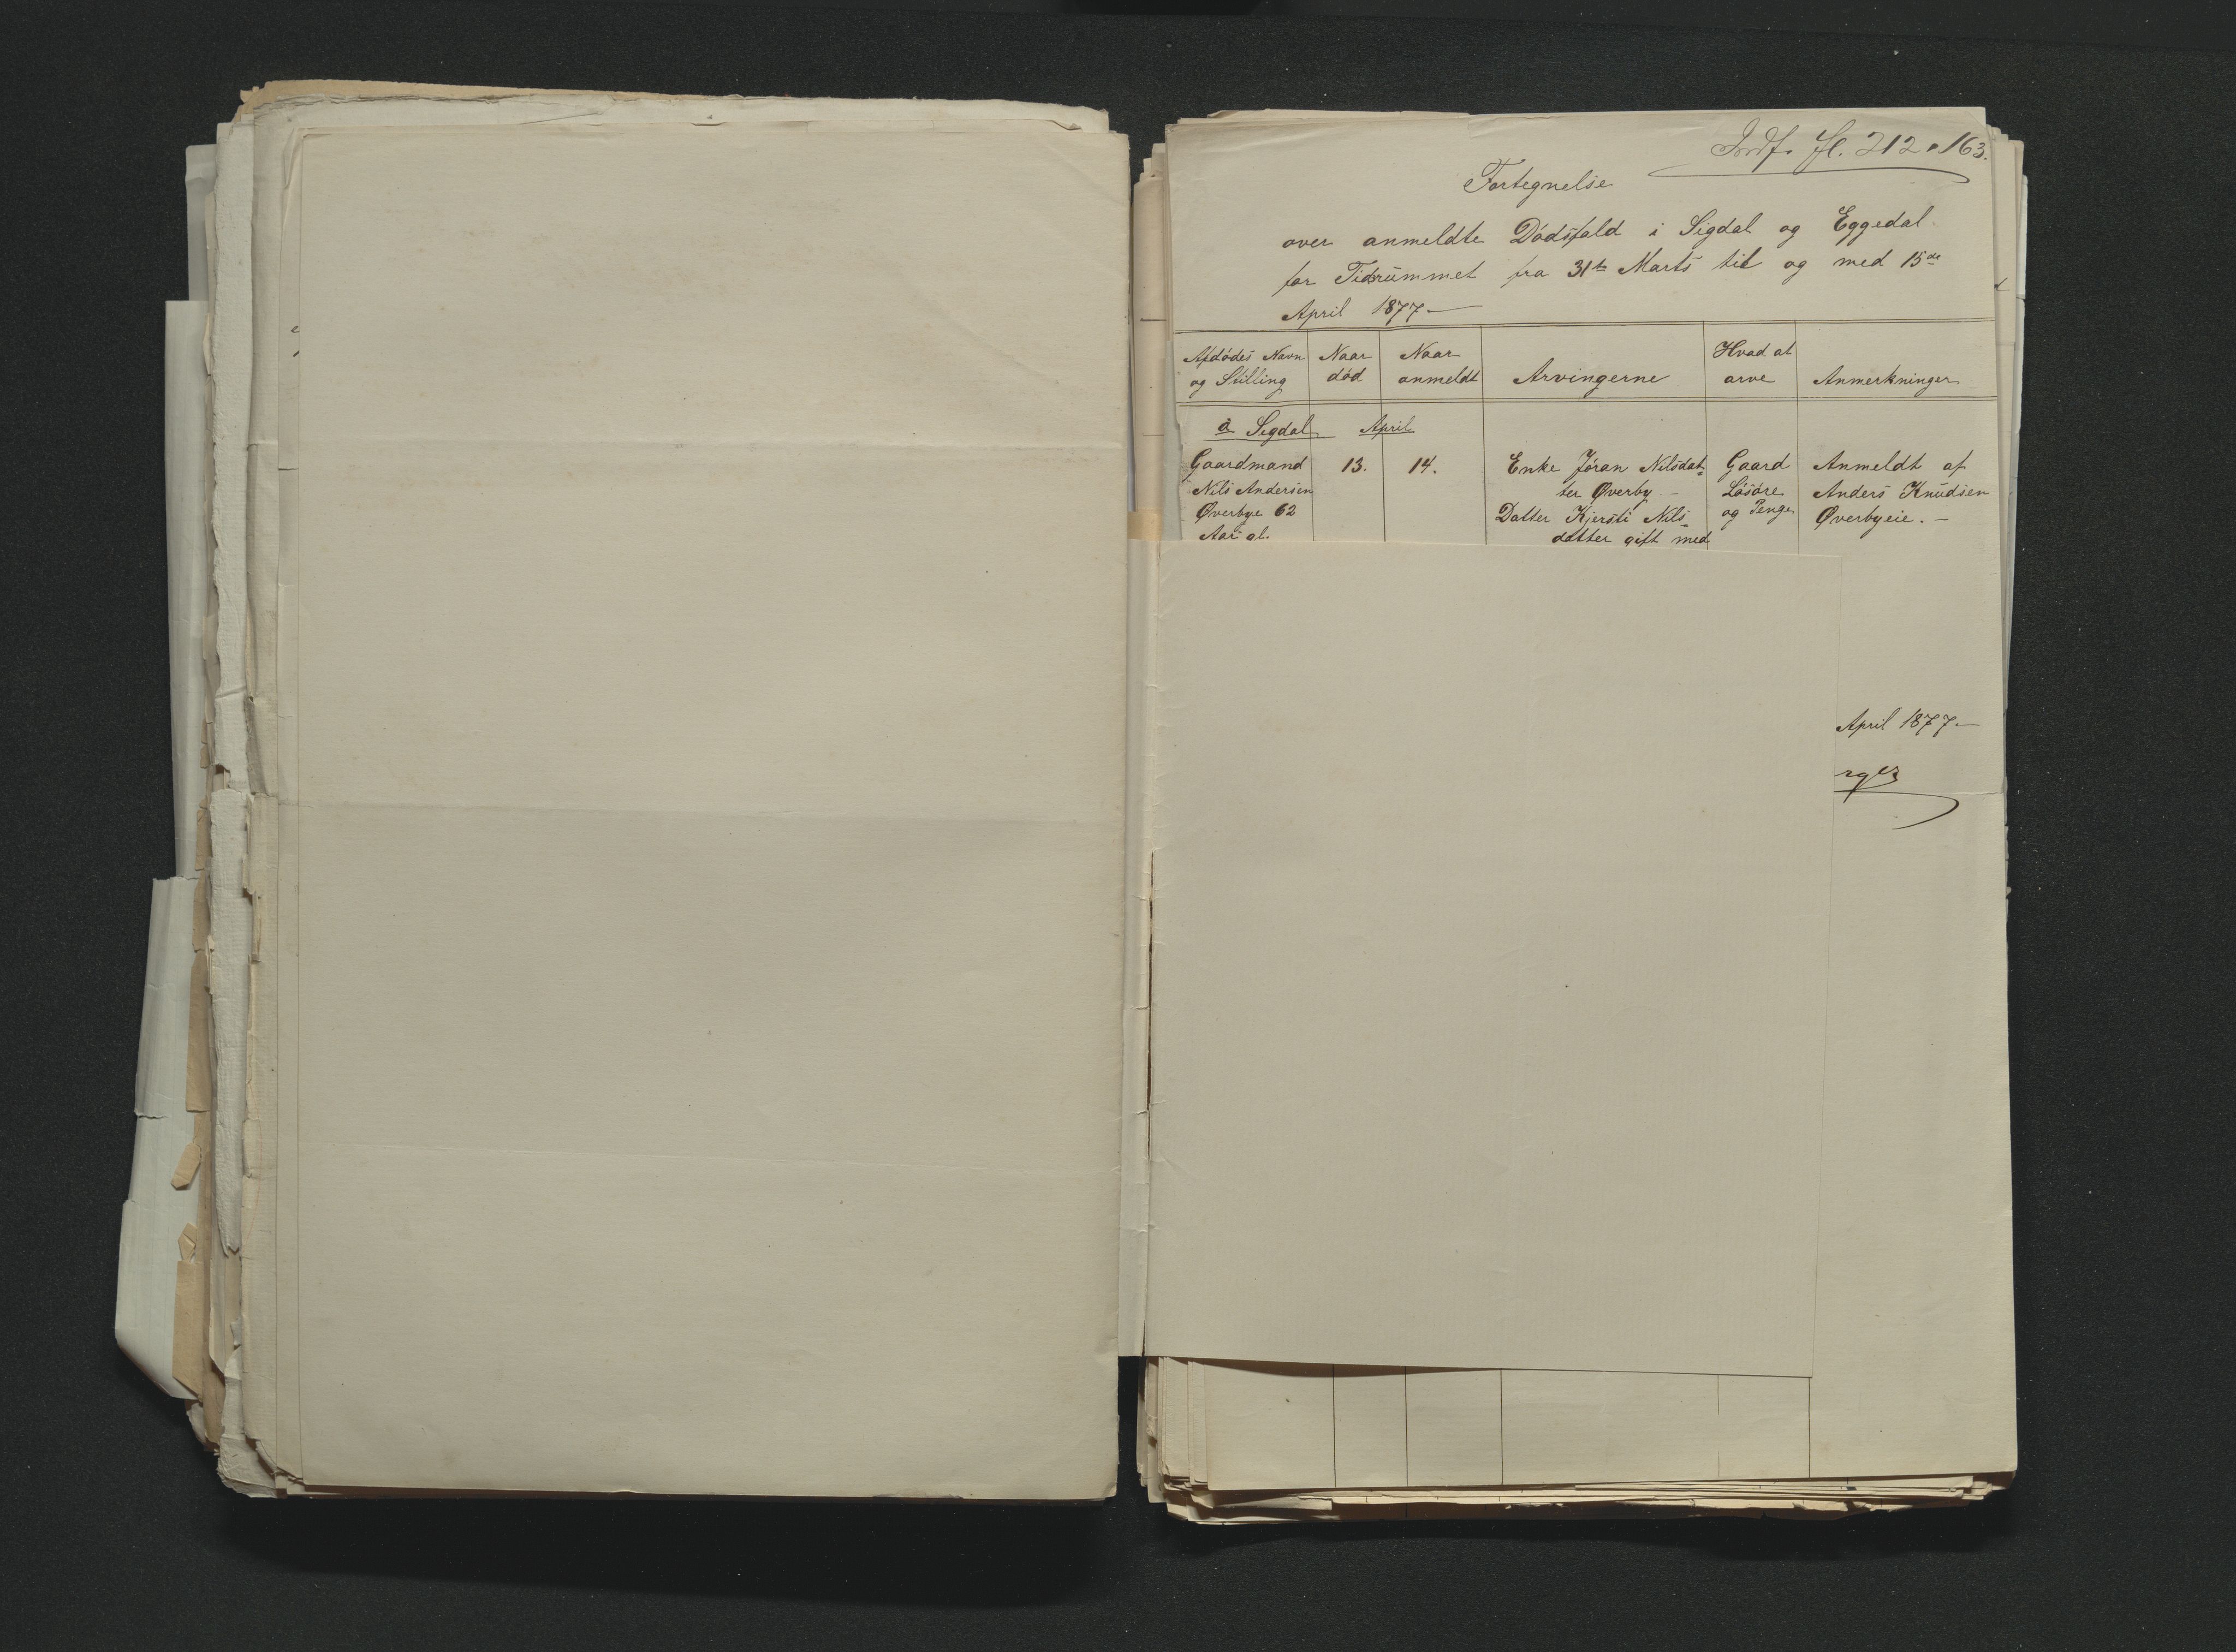 Indf. fl. 212 o 163.
Fortegnelse
over anmeldte Dödsfald i Sigdal og Eggedal
for Tidsrummet fra 31te Marts til og med 15de
April 1877 —
Afdödes Navn og Stilling | Naar död | Naar anmeldt | Arvingerne | Hvad at arve | Anmerkninger
a Sigdal April
Gaardmand 13. 14. Enke Jöran Nilsdat= Gaard Anmeldt af
Nils Andersen ter Øverby – Lösöre Anders Knudsen
Øverbye 62 Datter Kjersti Nils= og Penge Øverbyeie. –
Aar gl. datter gift med
April 1877. —